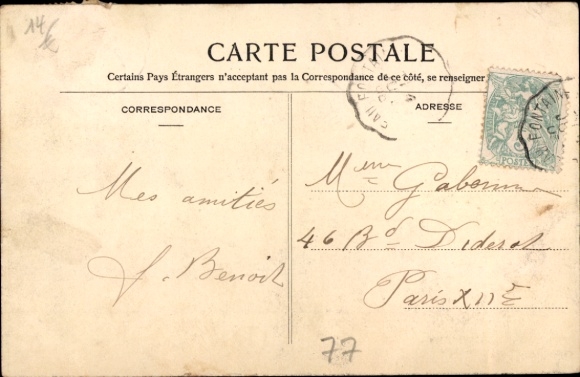 14
CARTE POSTALE
Certains Pays Étrangers n'acceptant pas la Correspondance de ce côté, se renseigner
CORRESPONDANCE
ADRESSE
Mes amitiés
J. Benoit
Mme
46 Bd Diderot
Paris XIIe
POSTES
FONTAINE
77